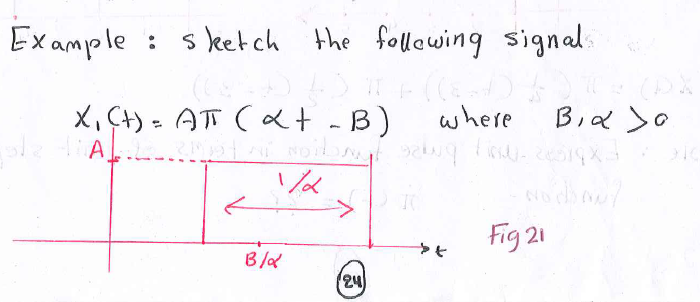 Example : sketch the following signal
X₁(t) = Aπ(αt - B) where B, α > 0
A
1/α
B/α
t
Fig 21
24